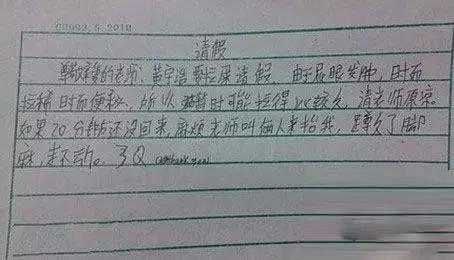 CU093.5.2010
请假
尊敬的老师:黄宇 要拉屎请假 由于屁眼发肿,时而
拉稀时而便秘,所以 时可能拉得比较久 请老师原谅。
如果20分钟后还没回来,麻烦老师叫俩人来抬我,蹲久了脚
麻,走不动。3Q